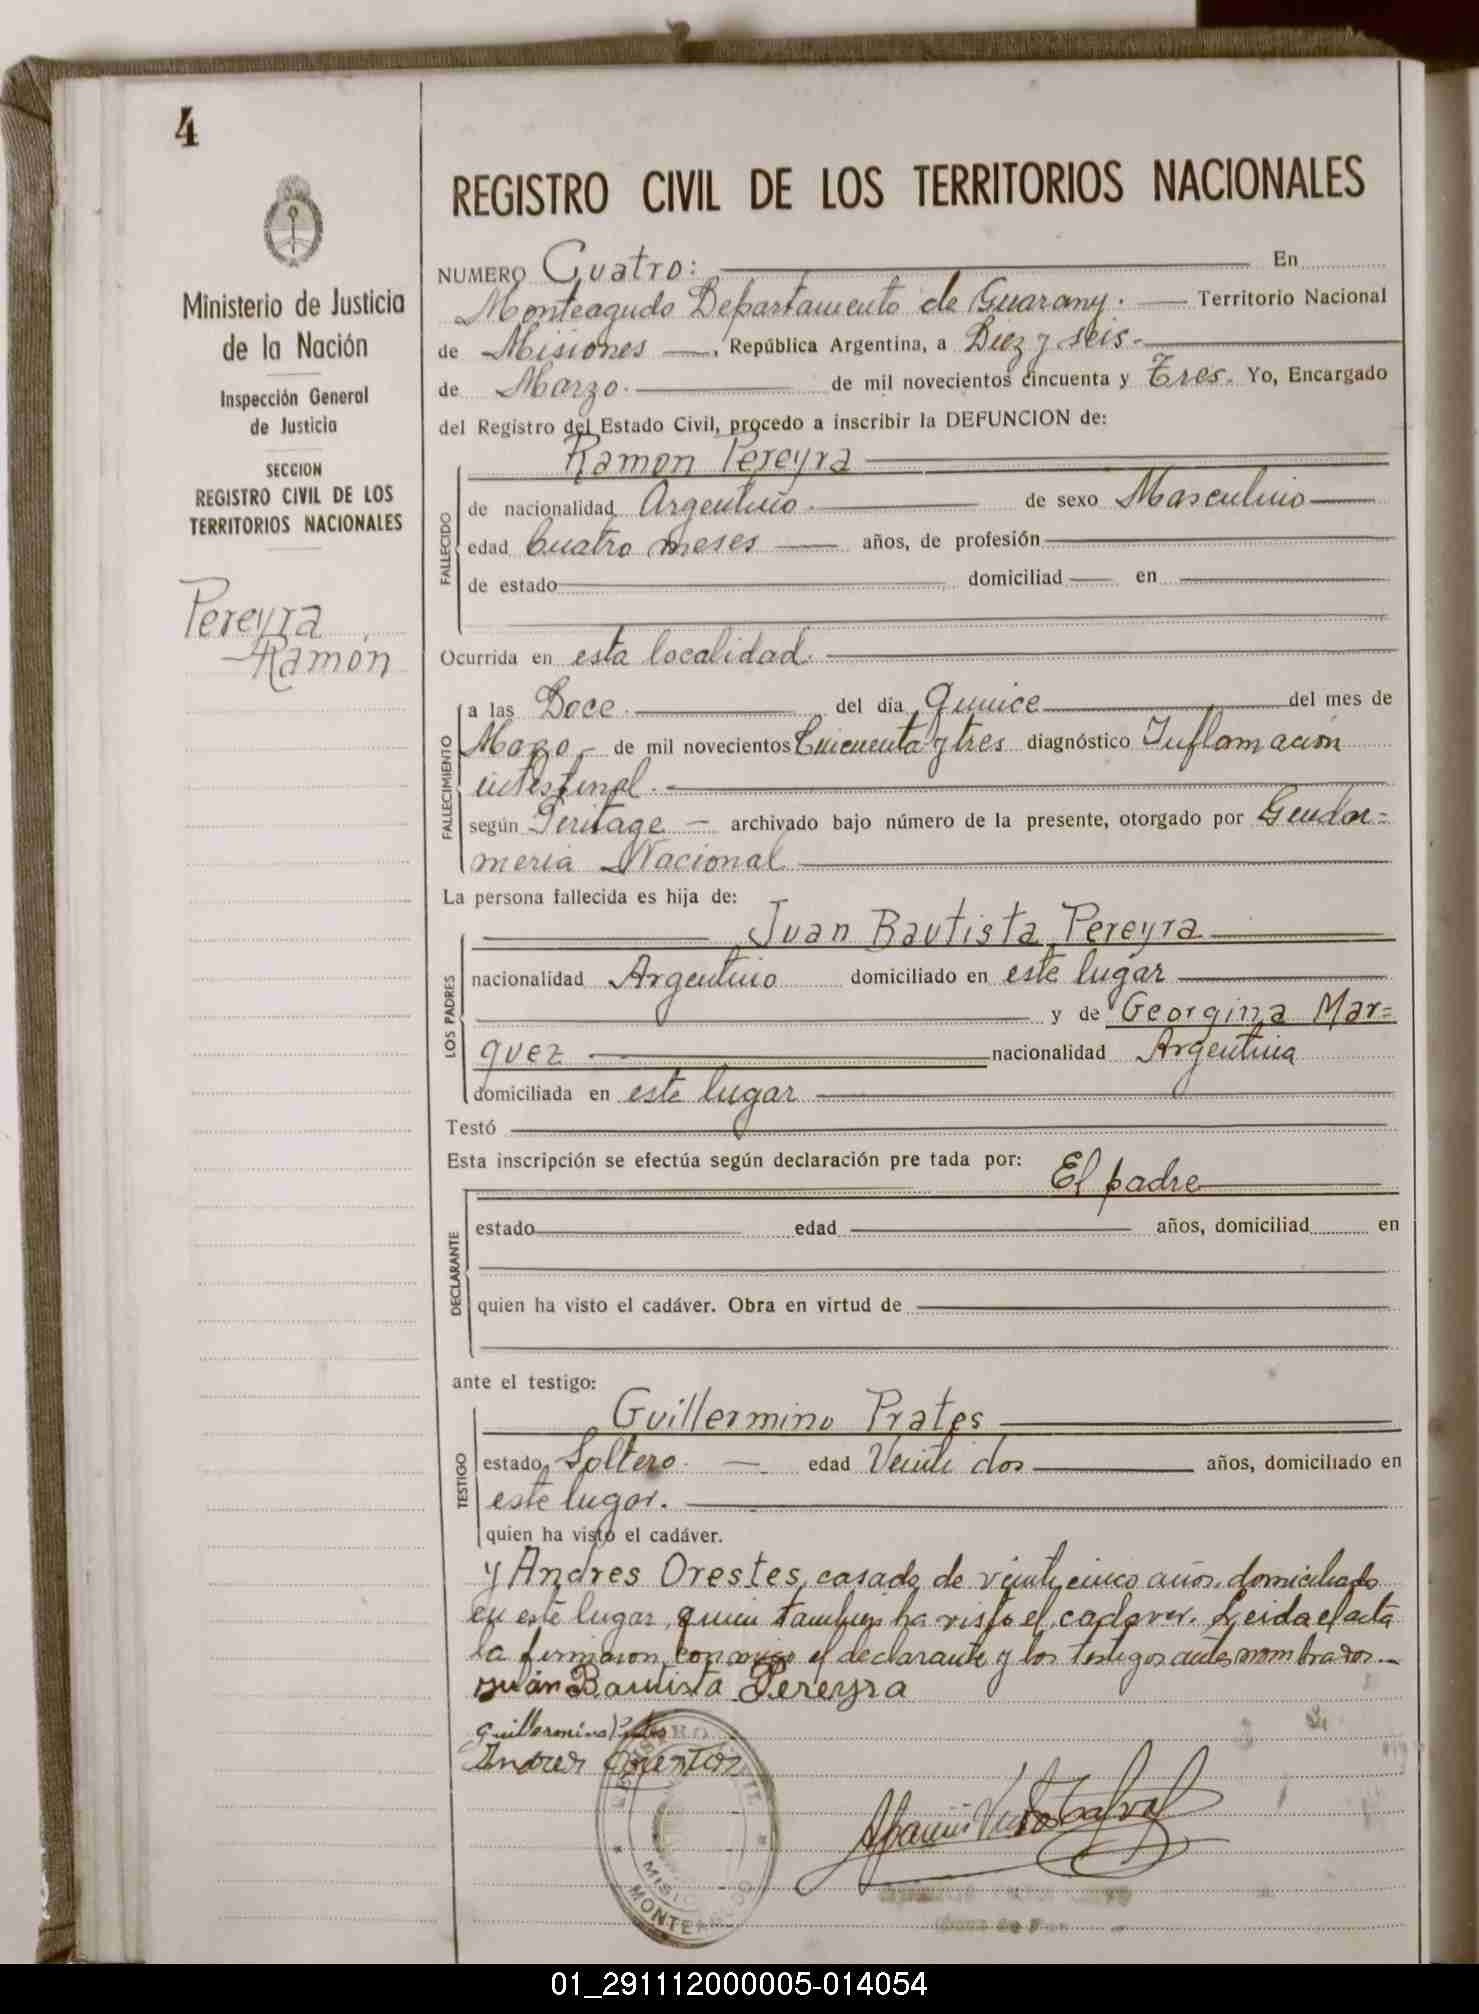 4
REGISTRO CIVIL DE LOS TERRITORIOS NACIONALES
Ministerio de Justicia
de la Nación
Inspección General
de Justicia
SECCION
REGISTRO CIVIL DE LOS
TERRITORIOS NACIONALES
Pereyra
Ramón
NUMERO Cuatro: En
Monteagudo Departamento de Guarany. Territorio Nacional
de Misiones, República Argentina, a Diez y seis.
de Marzo. de mil novecientos cincuenta y Tres. Yo, Encargado
del Registro del Estado Civil, procedo a inscribir la DEFUNCION de:
Ramon Pereyra
FALLECIDO
de nacionalidad Argentino. de sexo Masculino
edad Cuatro meses años, de profesión
de estado domiciliad en
Ocurrida en esta localidad.
FALLECIMIENTO
a las Doce. del dia Quince del mes de
Mazo de mil novecientos Cincuenta y tres diagnóstico Inflamacion
intestinal.
según Peritage archivado bajo número de la presente, otorgado por Gendar=
meria Nacional
La persona fallecida es hija de:
LOS PADRES
Juan Bautista Pereyra
nacionalidad Argentino domiciliado en este lugar
y de Georgina Mar=
quez nacionalidad Argentina
domiciliada en este lugar
Testó
Esta inscripción se efectúa según declaración pre tada por:
El padre
DECLARANTE
estado edad años, domiciliad en
quien ha visto el cadáver. Obra en virtud de
ante el testigo:
Guillermino Prates
TESTIGO
estado Soltero. edad Veinti dos años, domiciliado en
este lugar.
quien ha visto el cadáver.
y Andres Orestes, casado de veinty cinco años, domiciliado
en este lugar, quien tambien ha visto el cadaver. Leida el acta
la firmaron conmigo el declarante y los testigos antes nombrados.
Juan Bautista Pereyra
Guillermino Prates
Andres
MISIO
MONTEAGUDO
01_291112000005-014054